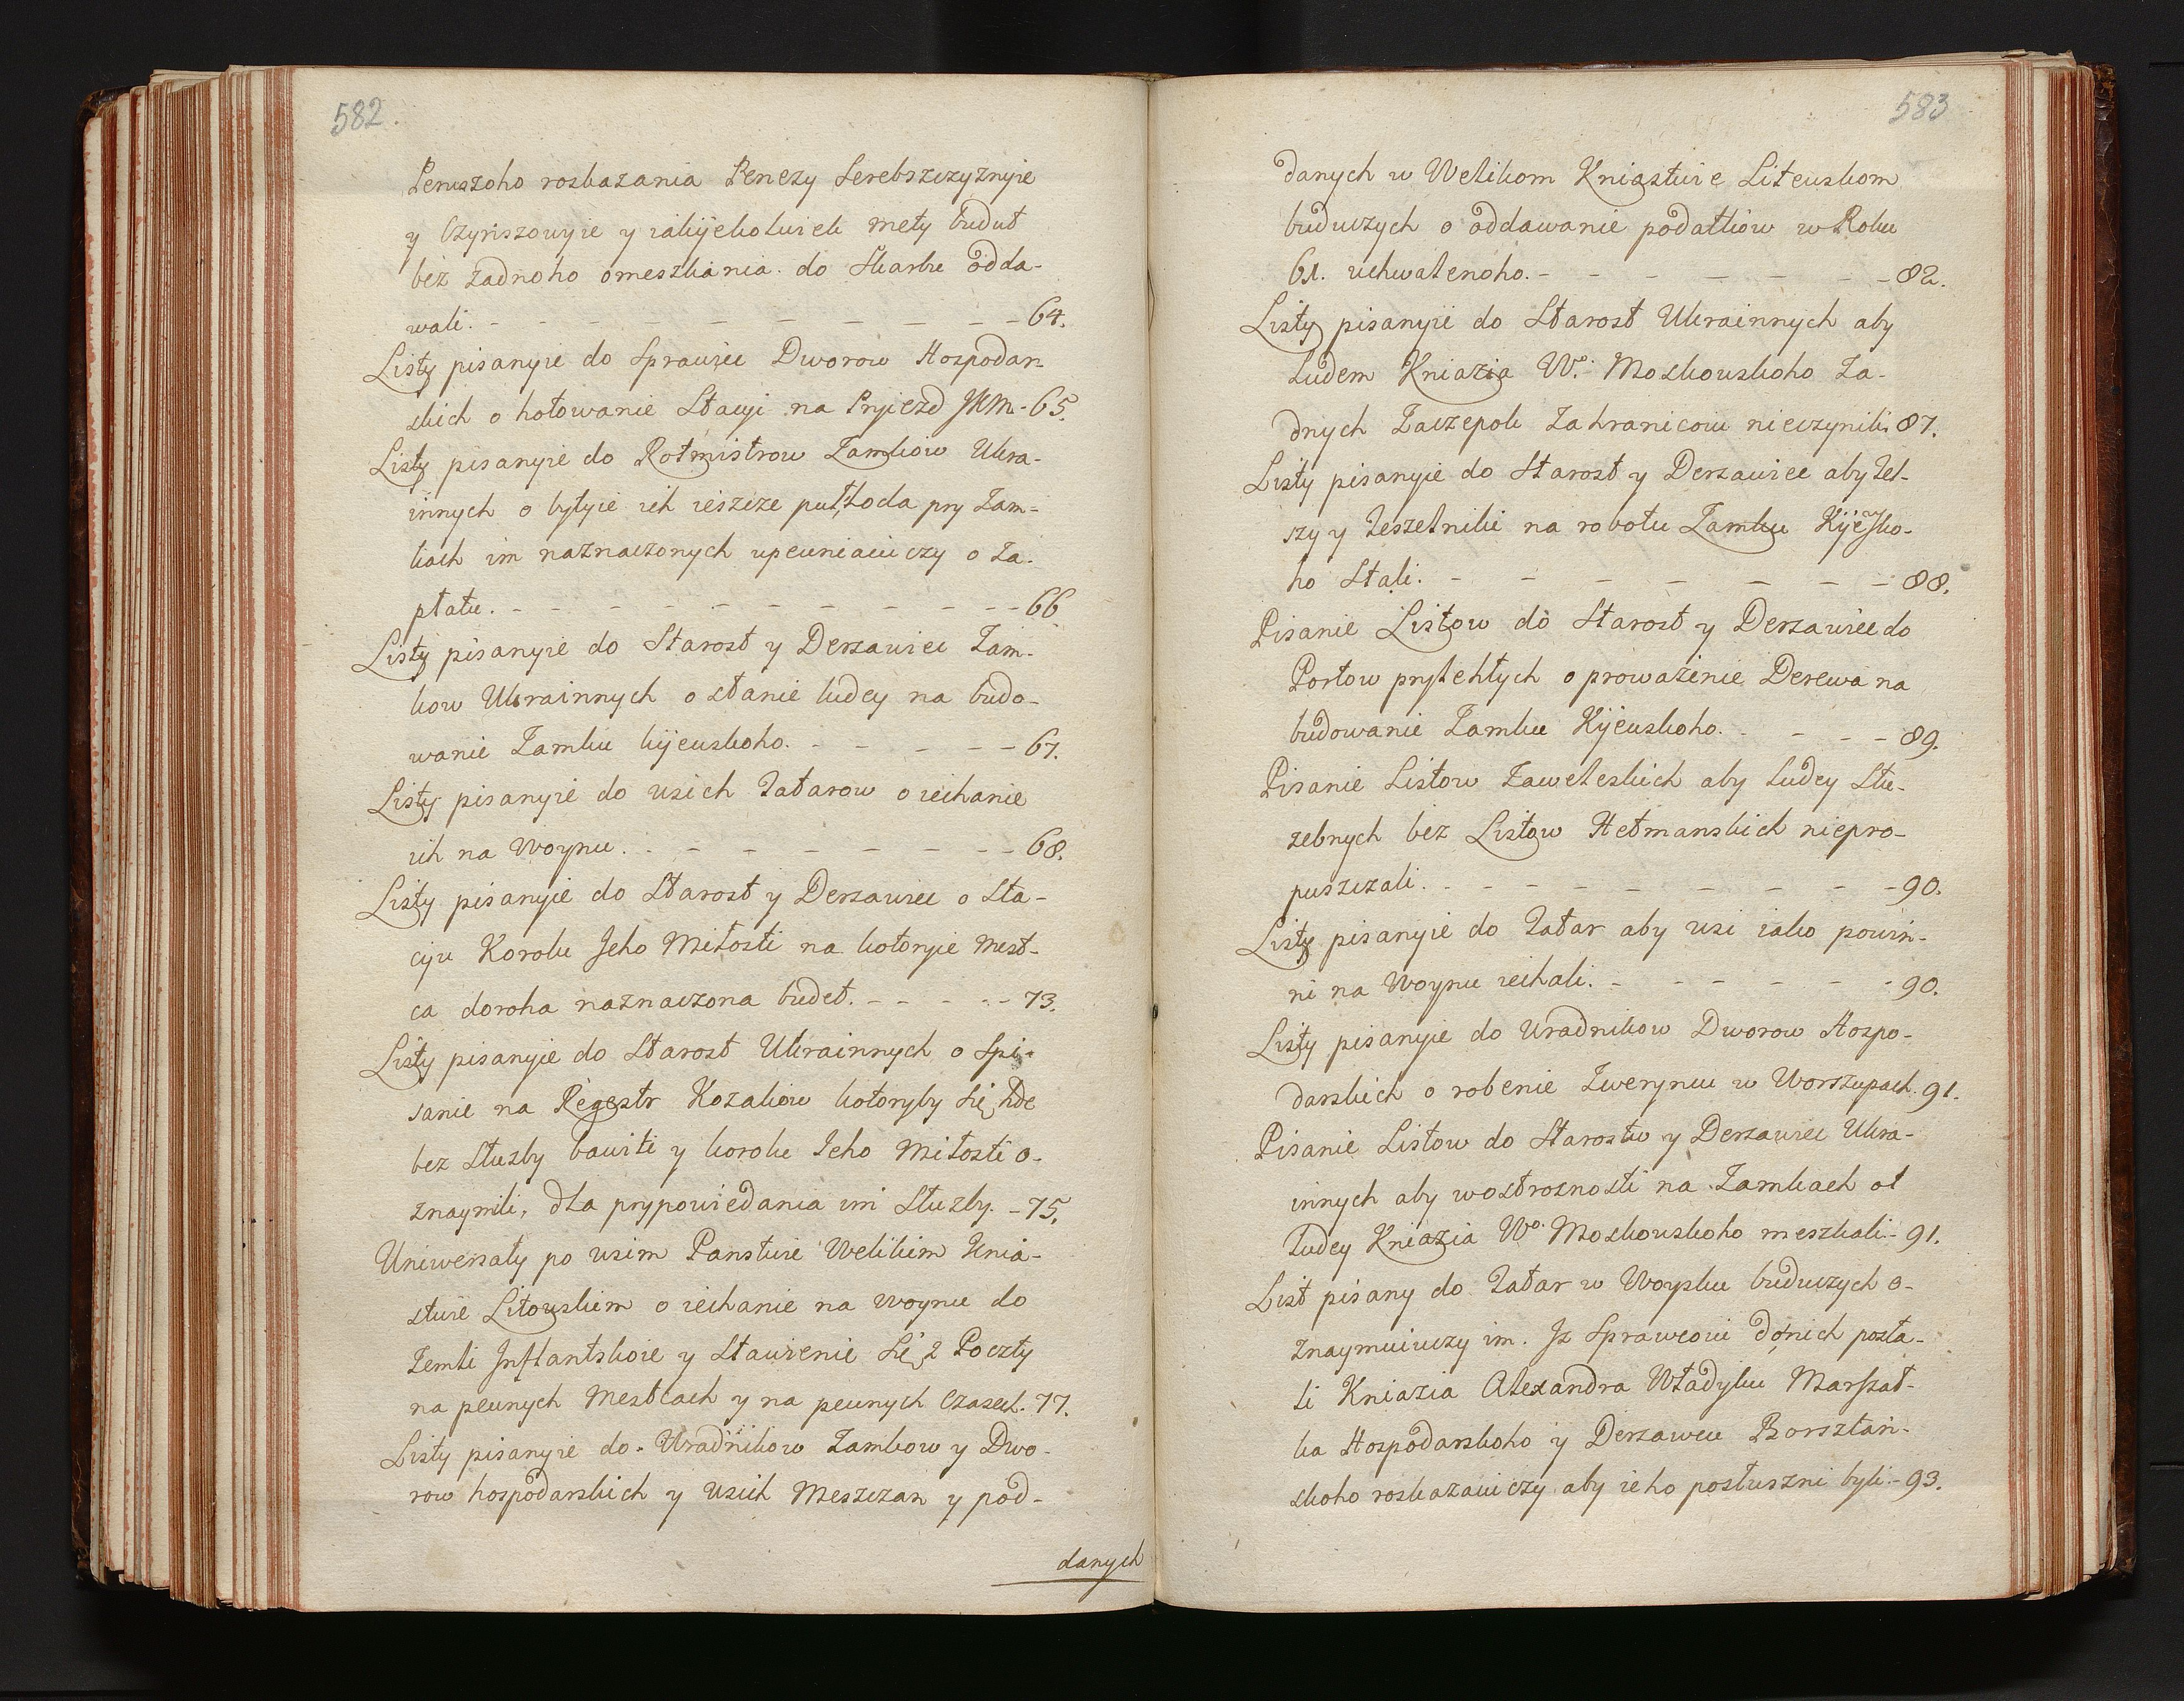 582.
Perwszoho roskazania Penezy Serebszczyznyie
y Czynszowyie y iakijekolwiek mety budut
bez żadnoho omeszkania do Skarbu odda-
wali. - - - - - - - - - - 64.
Listy pisanyie do Sprawiec Dworow Hospodar-
skich o hotowanie Stacyi na Pryiezd JKM - 65.
Listy pisanyie do Rotmistrow Zamkow Ukra-
innych o bytyie ich ieszcze puł hoda pry Zam-
kach im naznaczonych upewniaiuczy o Za-
płatu. - - - - - - - - - - 66
Listy pisanyie do Starost y Derzawiec Zam-
kow Ukrainnych o słanie ludey na budo-
wanie Zamku kijewskoho. - - - - - 67.
Listy pisanyie do wsich Tatarow o iechanie
ich na Woynu. - - - - - - - - 68.
Listy pisanyie do Starost y Derzawiec o Sta-
cyu Korolu Jeho Miłosti na kotoryie mest-
ca doroha naznaczona budet. - - - - - 73.
Listy pisanyie do Starost Ukrainnych o Spi-
sanie na Regestr Kozakow kotoryby się hde
bez Służby bawili y korolu Jeho Miłosti o-
znaymili, dla prypowiedania im Służby. - 75.
Uniwersały po wsim Panstwie Welikim Knia-
stwie Litowskim o iechanie na woynu do
Zemli Inflantskoie y Stawienie się z Poczty
na pewnych Mestcach y na pewnych Czasech. 77.
Listy pisanyie do Uradnikow Zamkow y Dwo-
row hospodarskich y wsich Meszczan y pod-
danych
583
danych w Welikom Kniastwie Litewskom
buduczych o oddawanie podatkow w Roku
61. uchwalenoho. - - - - - - - 82.
Listy pisanyie do Starost Ukrainnych aby
Ludem Kniazia Wo. Moskowskoho Ża-
dnych Zaczepok Zahranicoiu nieczynili. 87.
Listy pisanyie do Starost y Derzawiec aby Tel-
szy y Teszelniki na robotu Zamku Kijewsko-
ho Słali. - - - - - - - 88.
Pisanie Listow do Starost y Derzawiec do
Portow prylehłych o proważenie Derewa na
budowanie Zamku Kijewskoho. - - - - 89.
Pisanie Listow Zaweleskich aby Ludey Słu-
żebnych bez Listow Hetmanskich niepro-
puszczali. - - - - - - - - - 90.
Listy pisanyie do Tatar aby wsi iako powin-
ni na Woynu iechali. - - - - - - 90.
Listy pisanyie do Uradnikow Dworow Hospo-
darskich o robenie Zweryncu w Worszupach. 91.
Pisanie Listow do Starostw y Derzawiec Ukra-
innych aby wostrożnosti na Zamkach ot
Ludey Kniazia Wo. Moskowskoho meszkali. - 91.
List pisany do Tatar w Woysku buduczych o-
znaymuiuczy im. Iż Sprawcoiu do nich posła-
li Kniazia Alexandra Władyku Marszał-
ka Hospodarskoho y Derzawcu Borsztan-
skoho roskazuiuczy aby ieho posłuszni byli. - 93.